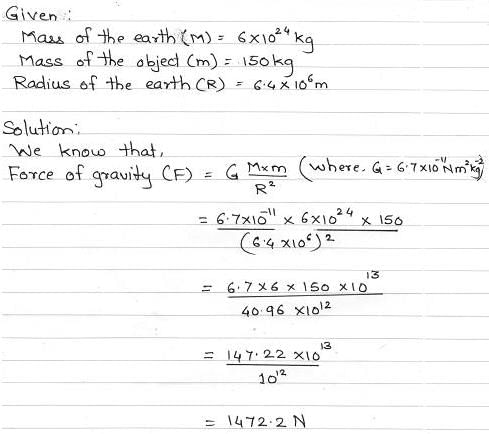 Given :
Mass of the earth (M) = 6×10²⁴ kg
Mass of the object (m) = 150kg
Radius of the earth (R) = 6.4 × 10⁶m
Solution:
We know that,
Force of gravity (F) = G M×m / R² (where, G = 6.7×10⁻¹¹ Nm²kg⁻²)
= 6.7×10⁻¹¹ × 6×10²⁴ × 150 / (6.4 ×10⁶)²
= 6.7 × 6 × 150 ×10¹³ / 40.96 ×10¹²
= 147.22 ×10¹³ / 10¹²
= 1472.2 N